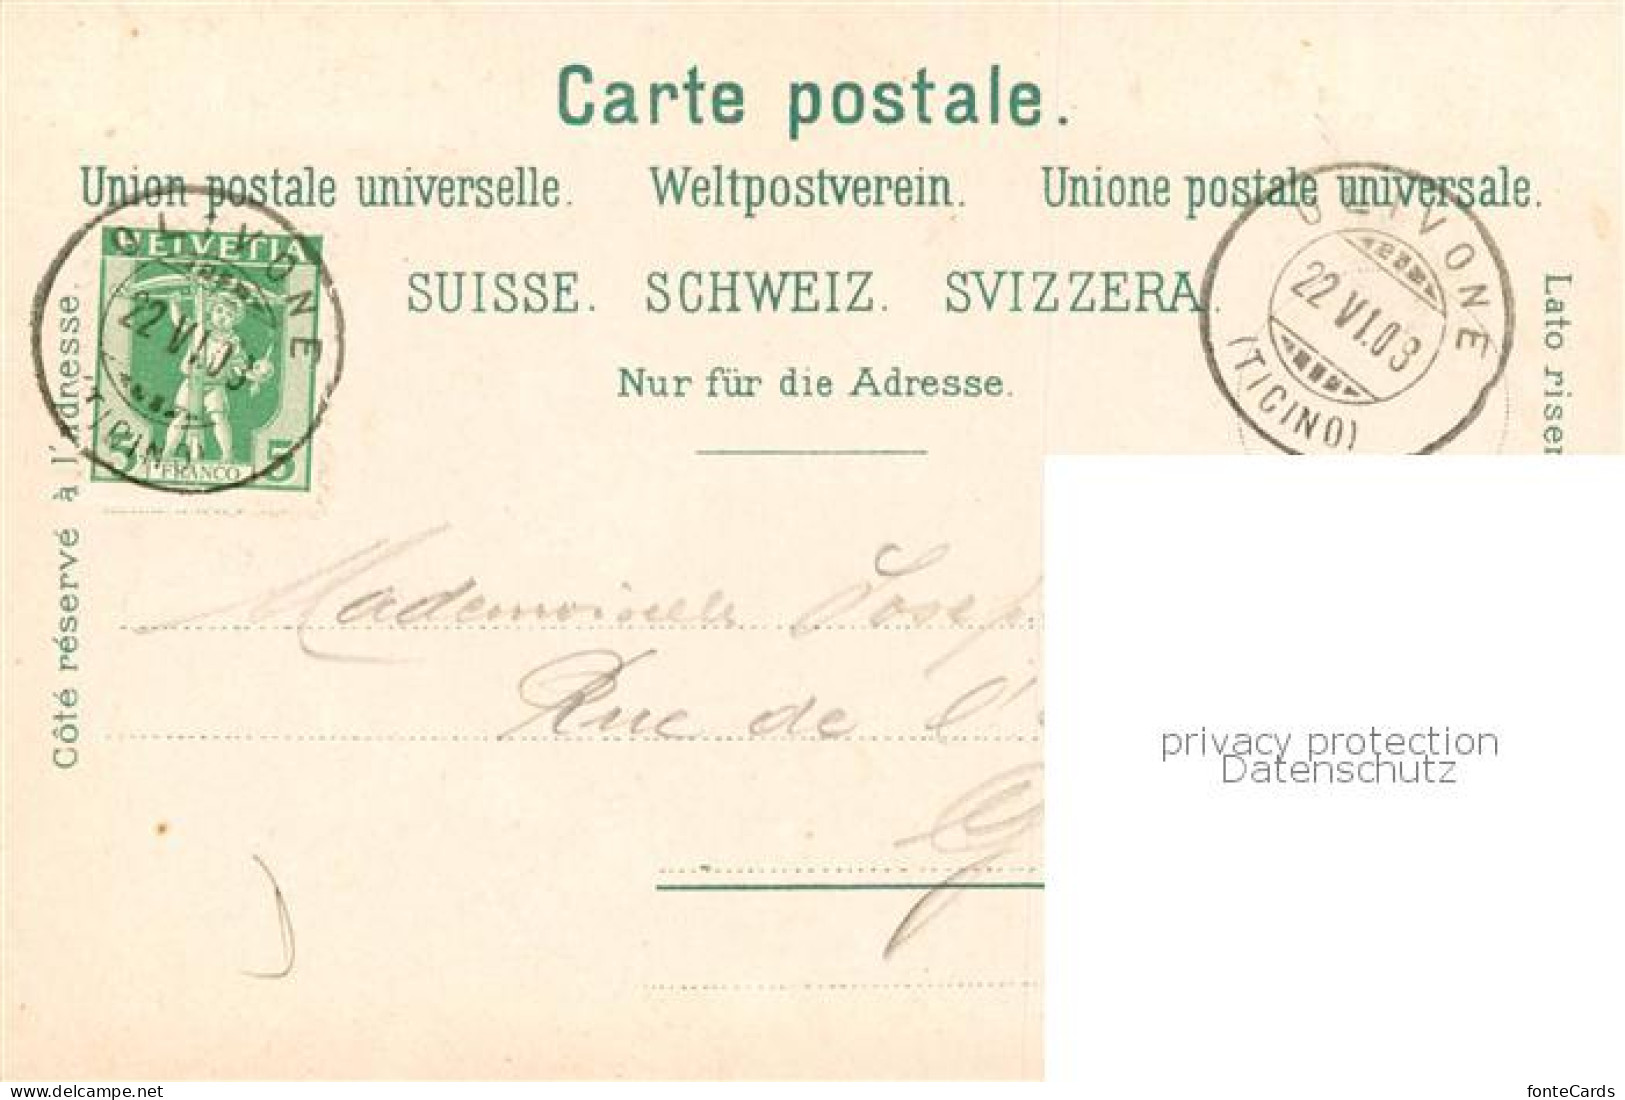 Carte postale.
Union postale universelle. Weltpostverein. Unione postale universale.
SUISSE. SCHWEIZ. SVIZZERA.
Nur für die Adresse.
Côté réservé à l'adresse.
Lato riser
HELVETIA
5 FRANCO 5
OLIVONE
22 VI.09
(TICINO)
OLIVONE
22 VI.09
(TICINO)
Mademoiselle Josep
Rue de l'
G
privacy protection
Datenschutz
fonteCards